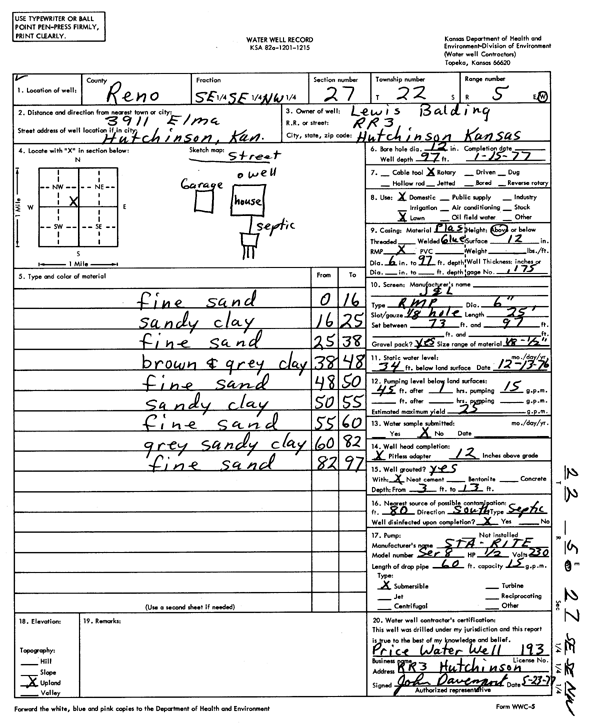 USE TYPEWRITER OR BALL
POINT PEN-PRESS FIRMLY,
PRINT CLEARLY.
WATER WELL RECORD
KSA 82a-1201-1215
Kansas Department of Health and
Environment-Division of Environment
(Water well Contractors)
Topeka, Kansas 66620
1. Location of well: County Reno Fraction SE 1/4 SE 1/4 NW 1/4 Section number 27 Township number T 22 S Range number R 5 E/W
2. Distance and direction from nearest town or city:
3911 Elma
Street address of well location if in city:
Hutchinson, Kan.
3. Owner of well: Lewis Balding
R.R. or street: RR3
City, state, zip code: Hutchinson Kansas
4. Locate with "X" in section below:
N
NW NE
X
W E
SW SE
S
1 Mile
1 Mile
Sketch map:
Street
o well
Garage
house
septic
6. Bore hole dia. 12 in. Completion date
Well depth 97 ft. 1-15-77
7. Cable tool X Rotary Driven Dug
Hollow rod Jetted Bored Reverse rotary
8. Use: X Domestic Public supply Industry
Irrigation Air conditioning Stock
X Lawn Oil field water Other
9. Casing: Material Plas Height: Above or below
Threaded Welded Glue Surface 12 in.
RMP X PVC Weight lbs./ft.
Dia. 6 in. to 97 ft. depth Wall Thickness: inches or
Dia. in. to ft. depth gage No. .175
5. Type and color of material From To
fine sand 0 16
sandy clay 16 25
fine sand 25 38
brown & grey clay 38 48
fine sand 48 50
sandy clay 50 55
fine sand 55 60
grey sandy clay 60 82
fine sand 82 97
(Use a second sheet if needed)
10. Screen: Manufacturer's name
J&L
Type RMP Dia. 6"
Slot/gauze 1/8 hole Length 25'
Set between 73 ft. and 97 ft.
ft. and ft.
Gravel pack? yes Size range of material 1/8-1/2"
11. Static water level: mo./day/yr.
34 ft. below land surface Date 12-13-76
12. Pumping level below land surfaces:
45 ft. after 1 hrs. pumping 15 g.p.m.
ft. after hrs. pumping g.p.m.
Estimated maximum yield 25 g.p.m.
13. Water sample submitted: mo./day/yr.
Yes X No Date
14. Well head completion:
X Pitless adapter 12 Inches above grade
15. Well grouted? yes
With: X Neat cement Bentonite Concrete
Depth: From 3 ft. to 13 ft.
16. Nearest source of possible contamination:
ft. 80 Direction South Type Septic
Well disinfected upon completion? X Yes No
17. Pump: Not installed
Manufacturer's name STA-RITE
Model number Ser 8 HP 1/2 Volts 230
Length of drop pipe 60 ft. capacity 15 g.p.m.
Type:
X Submersible Turbine
Jet Reciprocating
Centrifugal Other
18. Elevation:
Topography:
Hill
Slope
X Upland
Valley
19. Remarks:
20. Water well contractor's certification:
This well was drilled under my jurisdiction and this report
is true to the best of my knowledge and belief.
Price Water Well 193
Business name License No.
Address RR3 Hutchinson
Signed John Davenport Date 5-23-77
Authorized representative
Forward the white, blue and pink copies to the Department of Health and Environment
Form WWC-5
T 22 R 5 E W Sec 27 1/4 SE 1/4 SE 1/4 NW